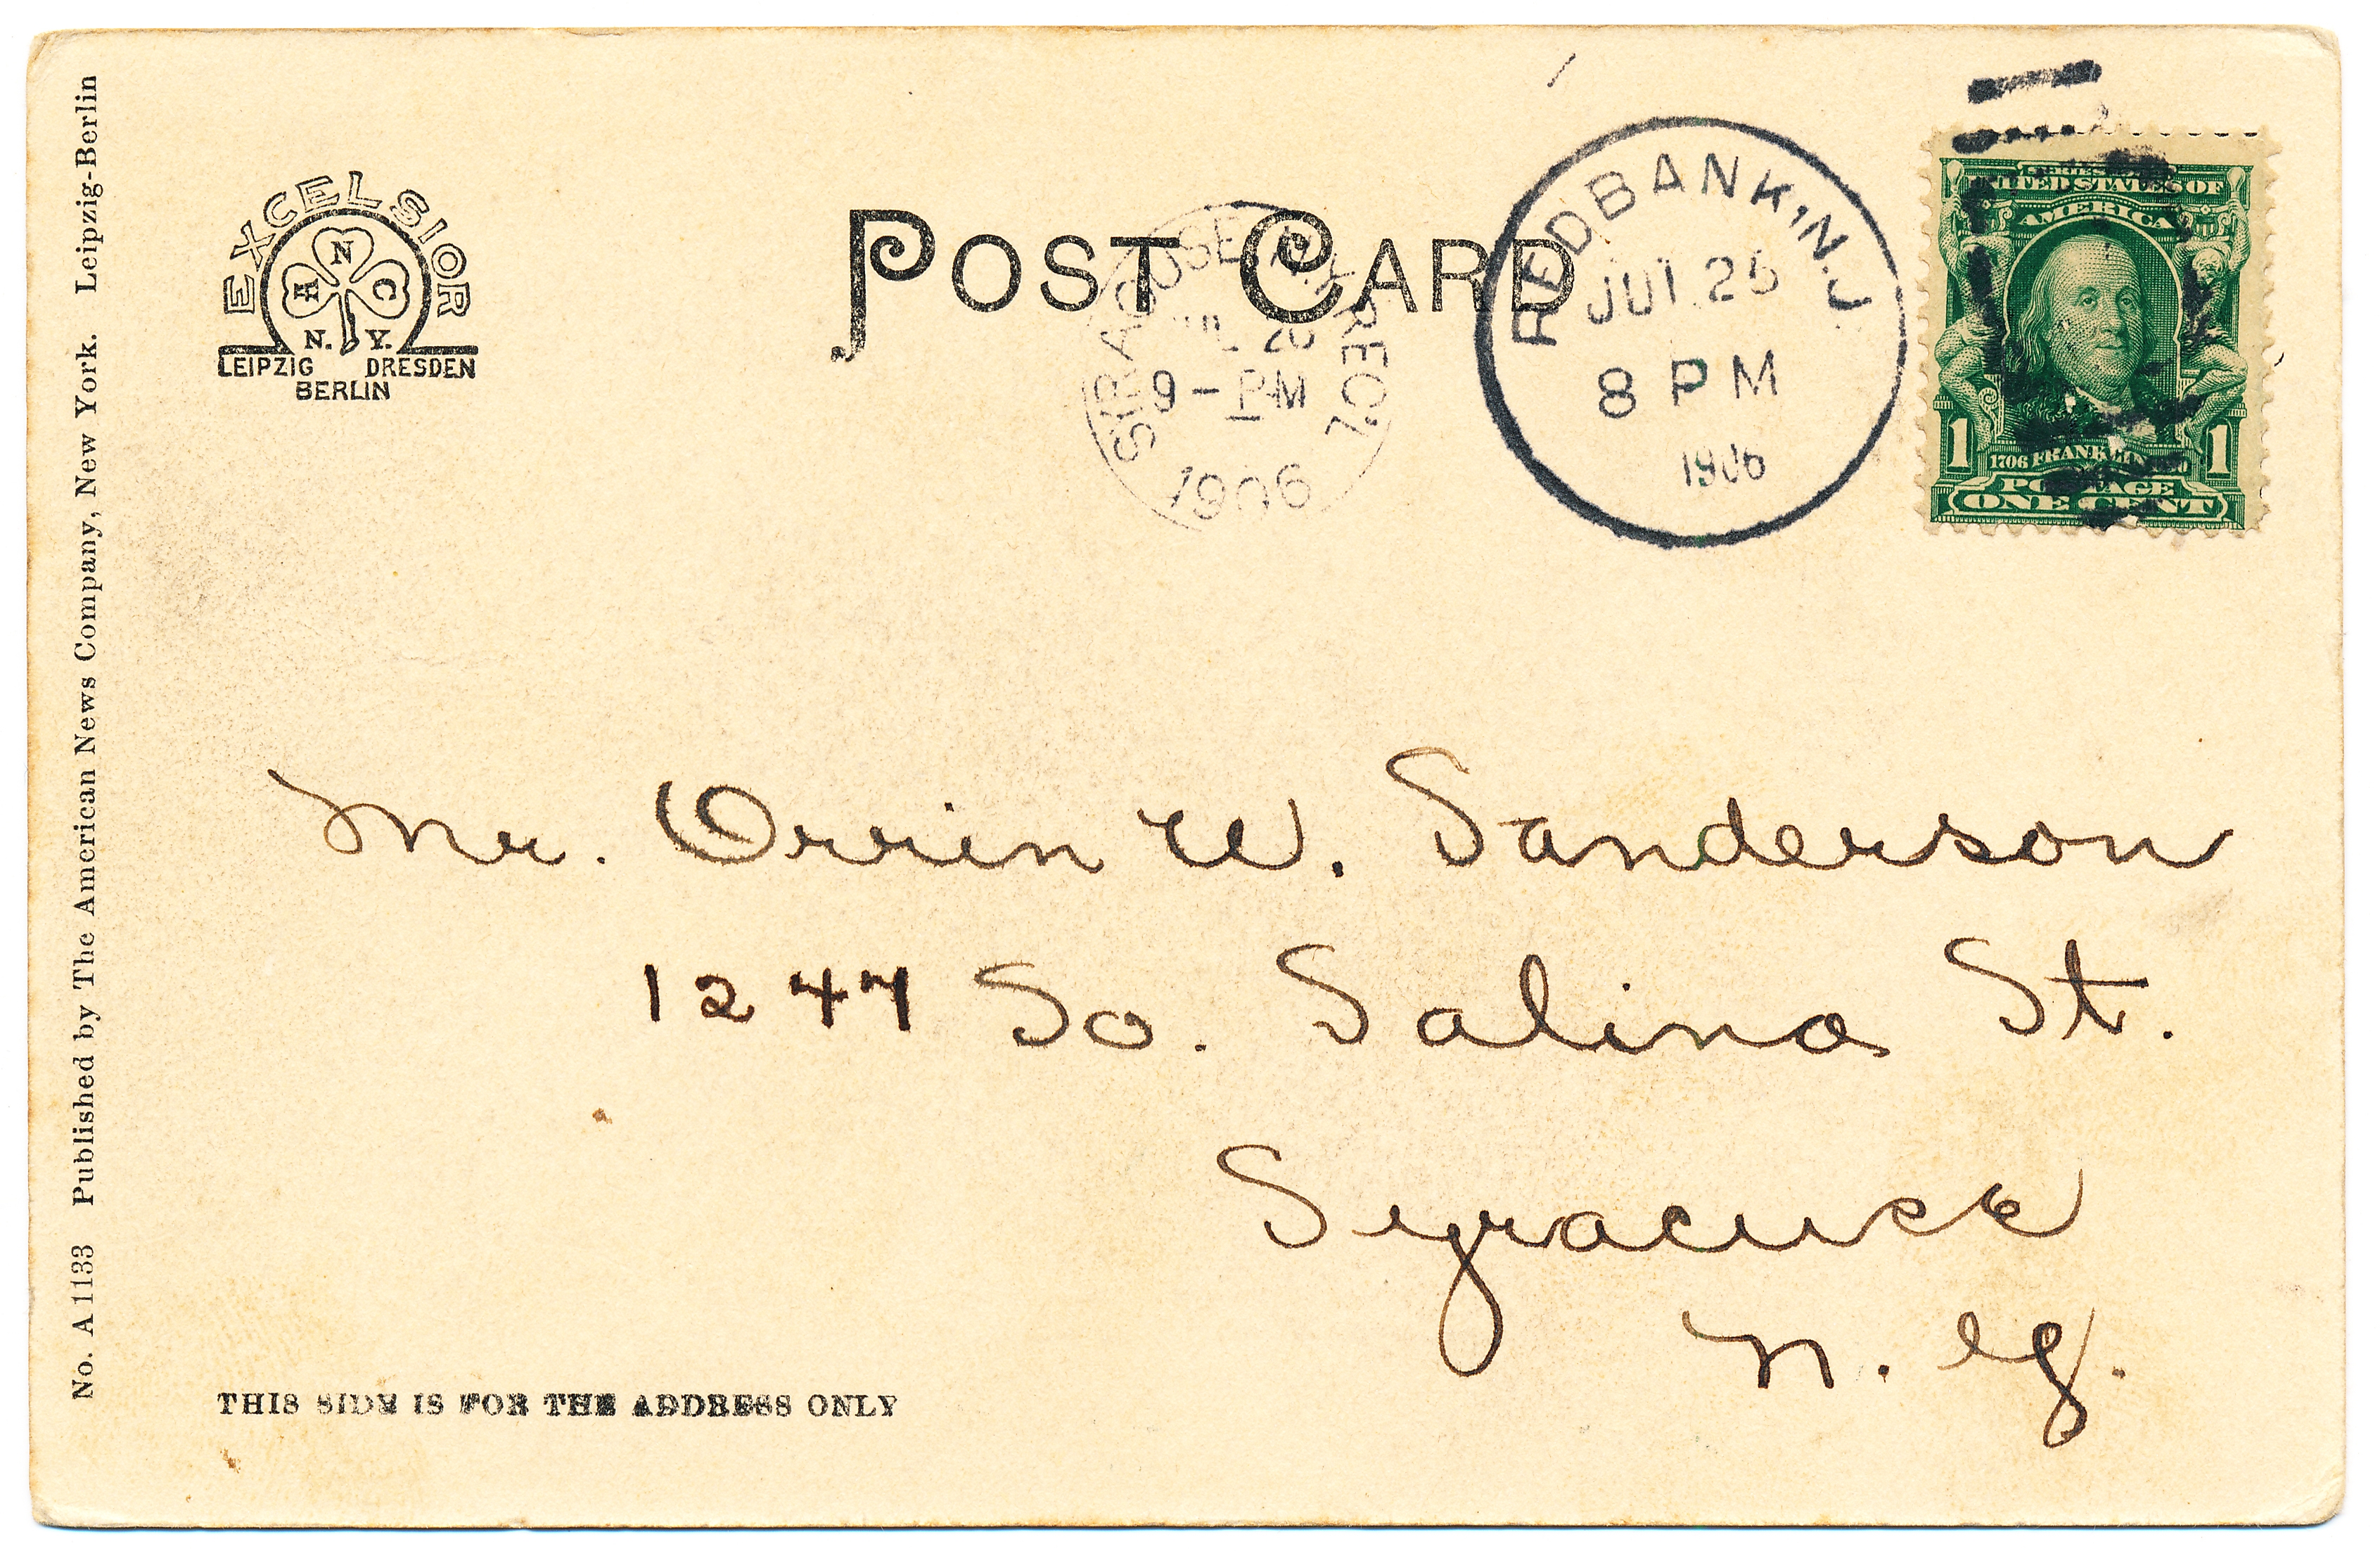 No. A 1133 Published by The American News Company, New York. Leipzig-Berlin
EXCELSIOR
A N C
N. Y.
LEIPZIG DRESDEN
BERLIN
POST CARD
SYRACUSE, N.Y.
REC'D.
9 - PM
1906
RED BANK, N.J.
JUL 25
8 PM
1906
SERIES
UNITED STATES OF
AMERICA
1 1
1706 FRANKLIN
POSTAGE
ONE CENT
Mr. Orrin W. Sanderson
1247 So. Salina St.
Syracuse
N. Y.
THIS SIDE IS FOR THE ADDRESS ONLY